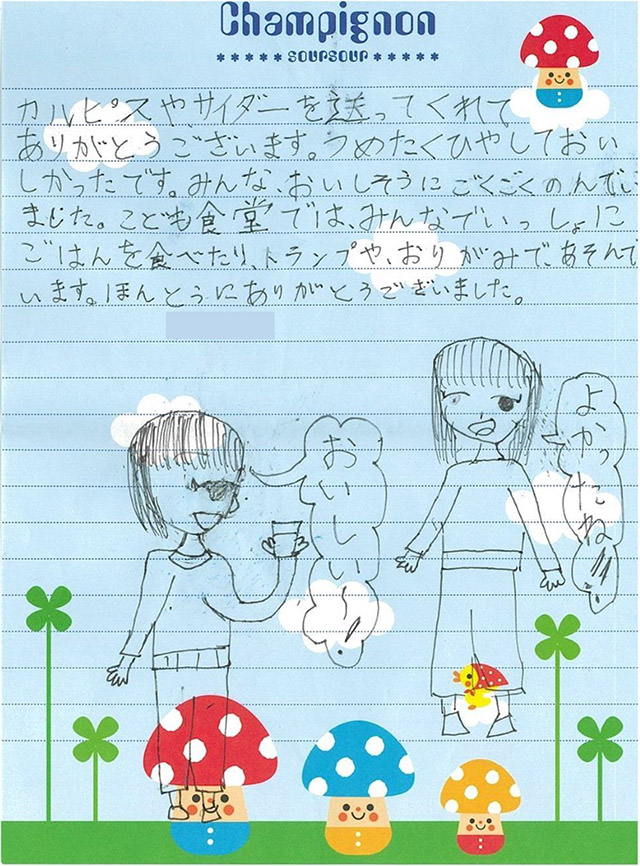 Champignon
SOUPSOUP
カルピスやサイダーを送ってくれて
ありがとうございます。つめたくひやしておい
しかったです。みんな、おいしそうにごくごくのんでい
ました。こども食堂では、みんなでいっしょに
ごはんを食べたり、トランプや、おりがみで、あそんで
います。ほんとうにありがとうございました。
おいしい!
よかったね!!